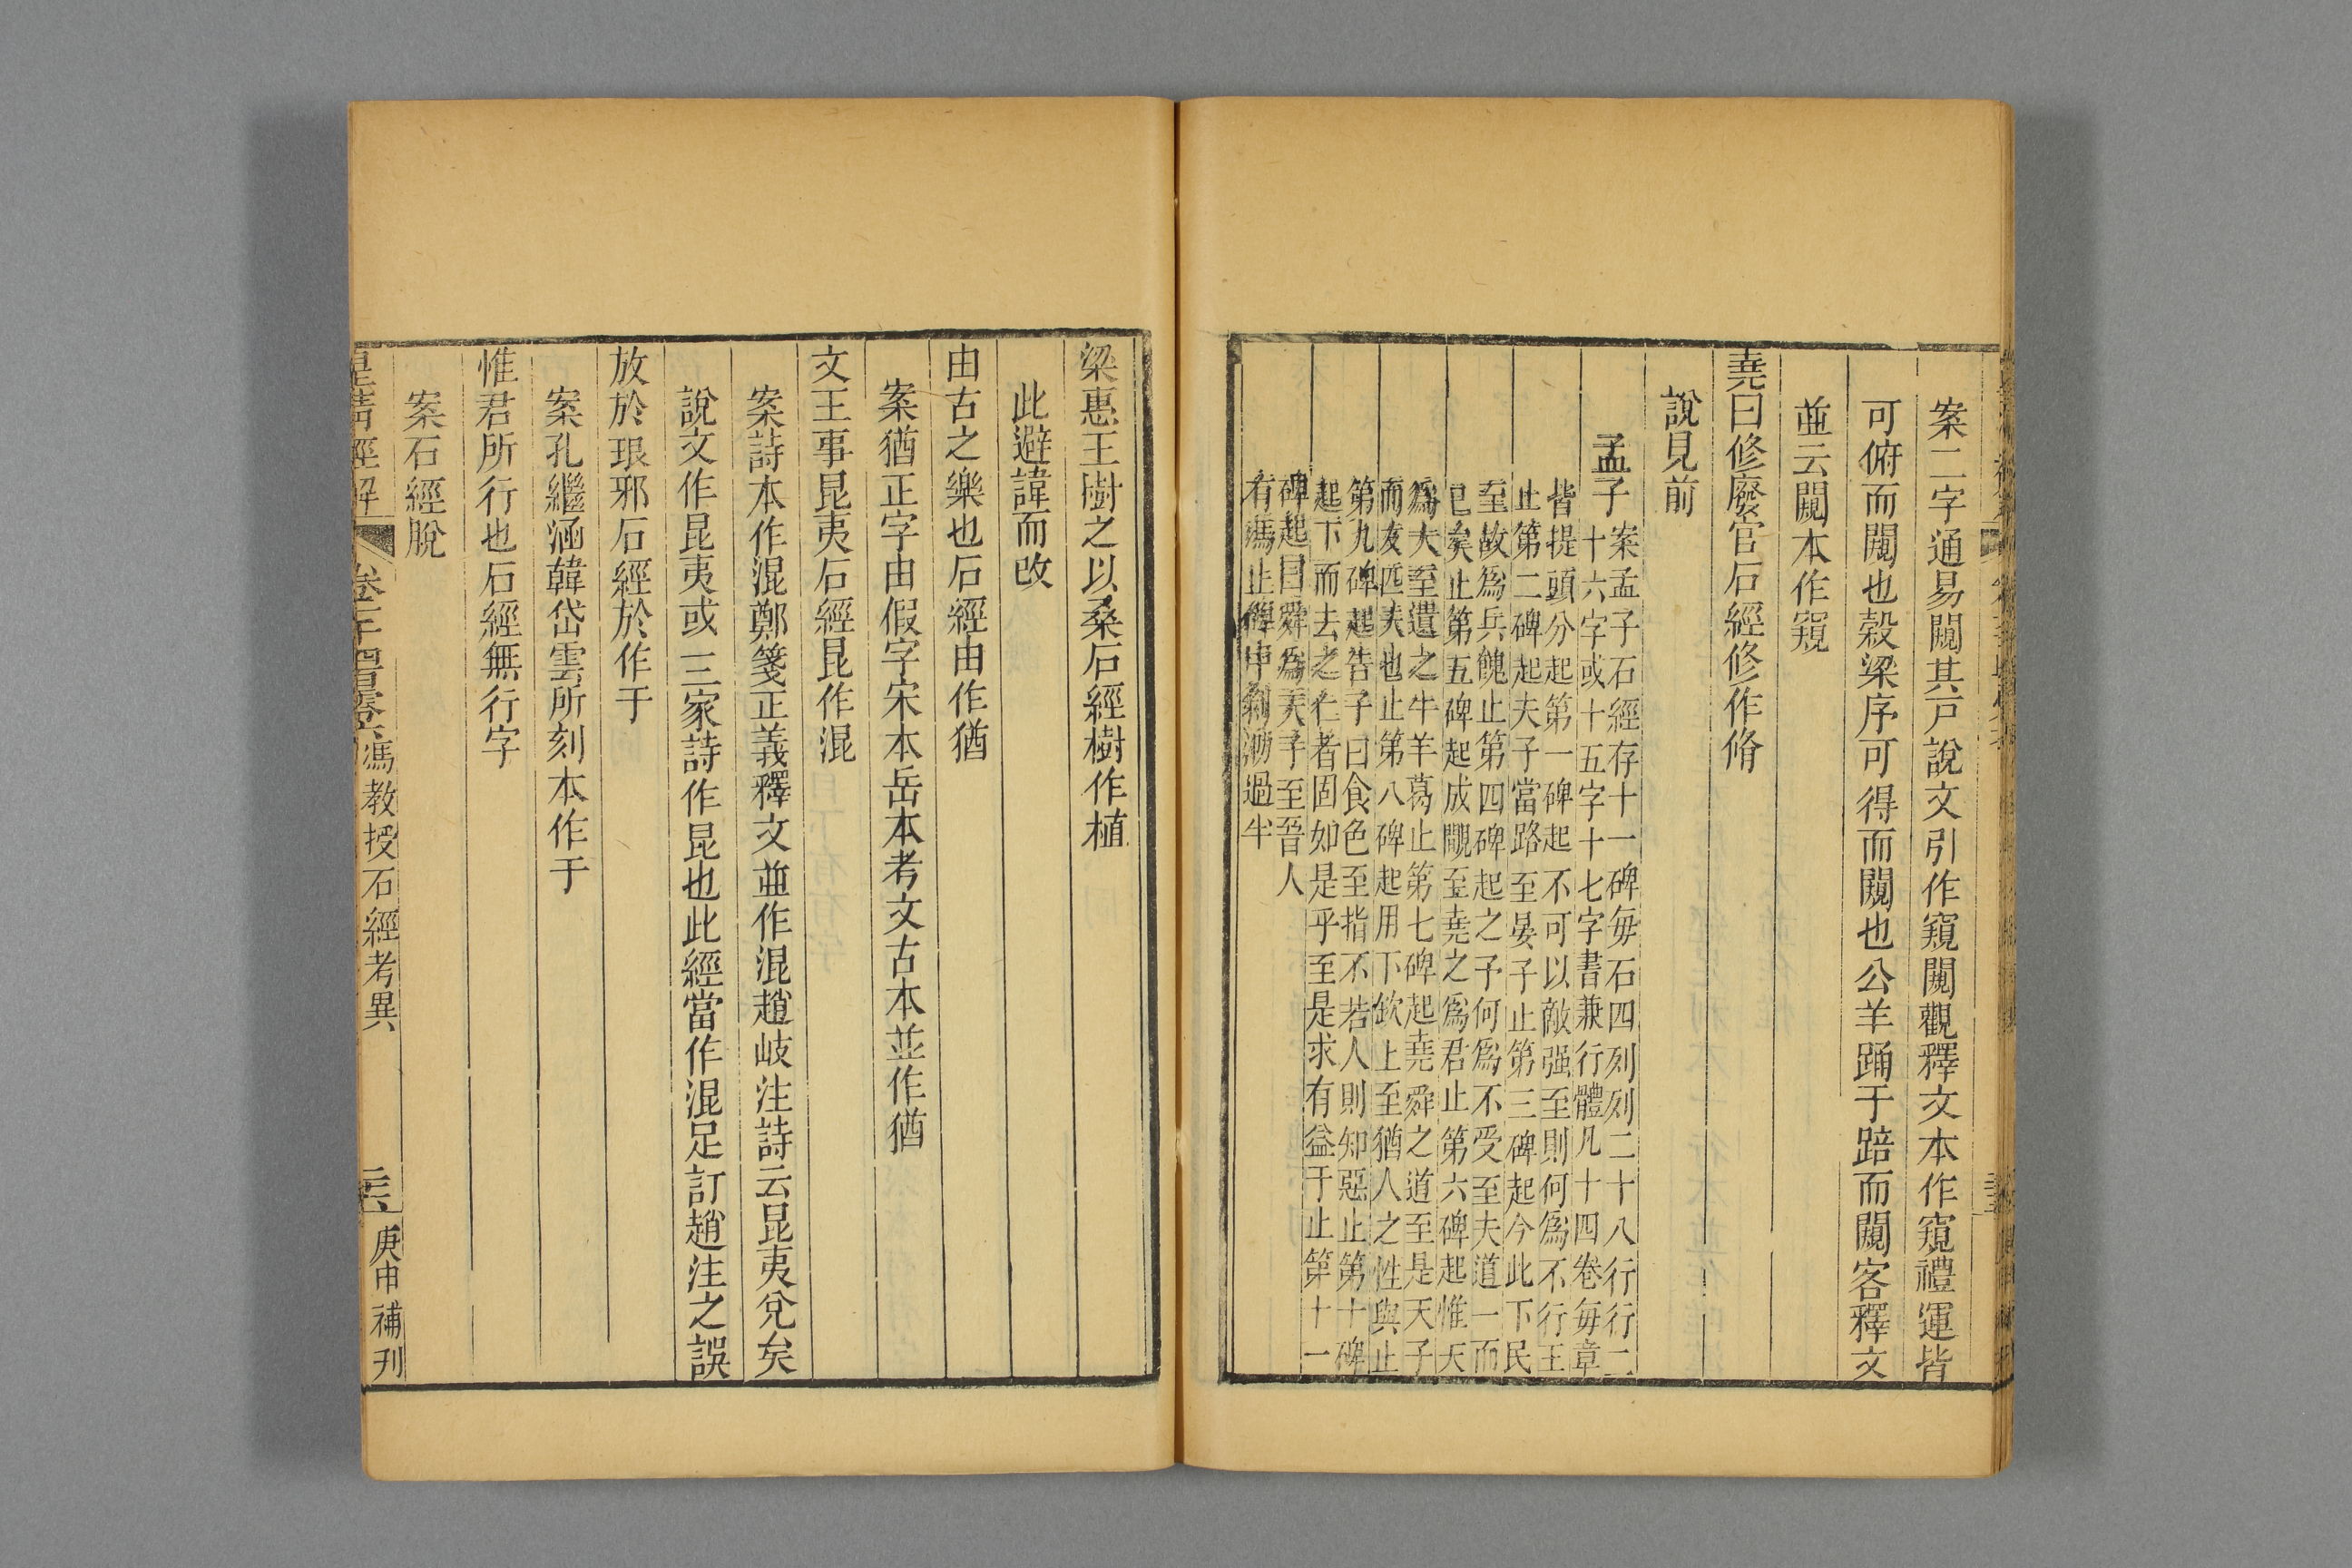 案二字通易闚其戸說文引作窺闚觀釋文本作窺禮運皆
可俯而闚也穀梁序可得而闚也公羊踊于踣而闚客釋文
並云闚本作窺
堯曰修廢官石經修作脩
說見前
孟子
案孟子石經存十一碑每石四列列二十八行行二
十六字或十五字十七字書兼行體凡十四卷每章
皆提頭分起第一碑起不可以敵强至則何爲不行王
止第二碑起夫子當路至晏子止第三碑起今此下民
至故爲兵餽止第四碑起之予何爲不受至夫道一而
已矣止第五碑起成覸至堯之爲君止第六碑起惟天
爲大至遺之牛羊葛止第七碑起堯舜之道至是天子
而友匹夫也止第八碑起用下欽上至猶人之性與止
第九碑起告子曰食色至指不若人則知惡止第十碑
起下而去之仁者固如是乎至是求有益于止第十一
碑起曰舜爲天子至晉人
有馮止碑中剝泐過半
梁惠王樹之以桑石經樹作植
此避諱而改
由古之樂也石經由作猶
案猶正字由假字宋本岳本考文古本並作猶
文王事昆夷石經昆作混
案詩本作混鄭箋正義釋文並作混趙岐注詩云昆夷兌矣
說文作昆夷或三家詩作昆也此經當作混足訂趙注之誤
放於琅邪石經於作于
案孔繼涵韓岱雲所刻本作于
惟君所行也石經無行字
案石經脫
皇淸經解 卷一千四百零六 馮教授石經考異 庚申補刊